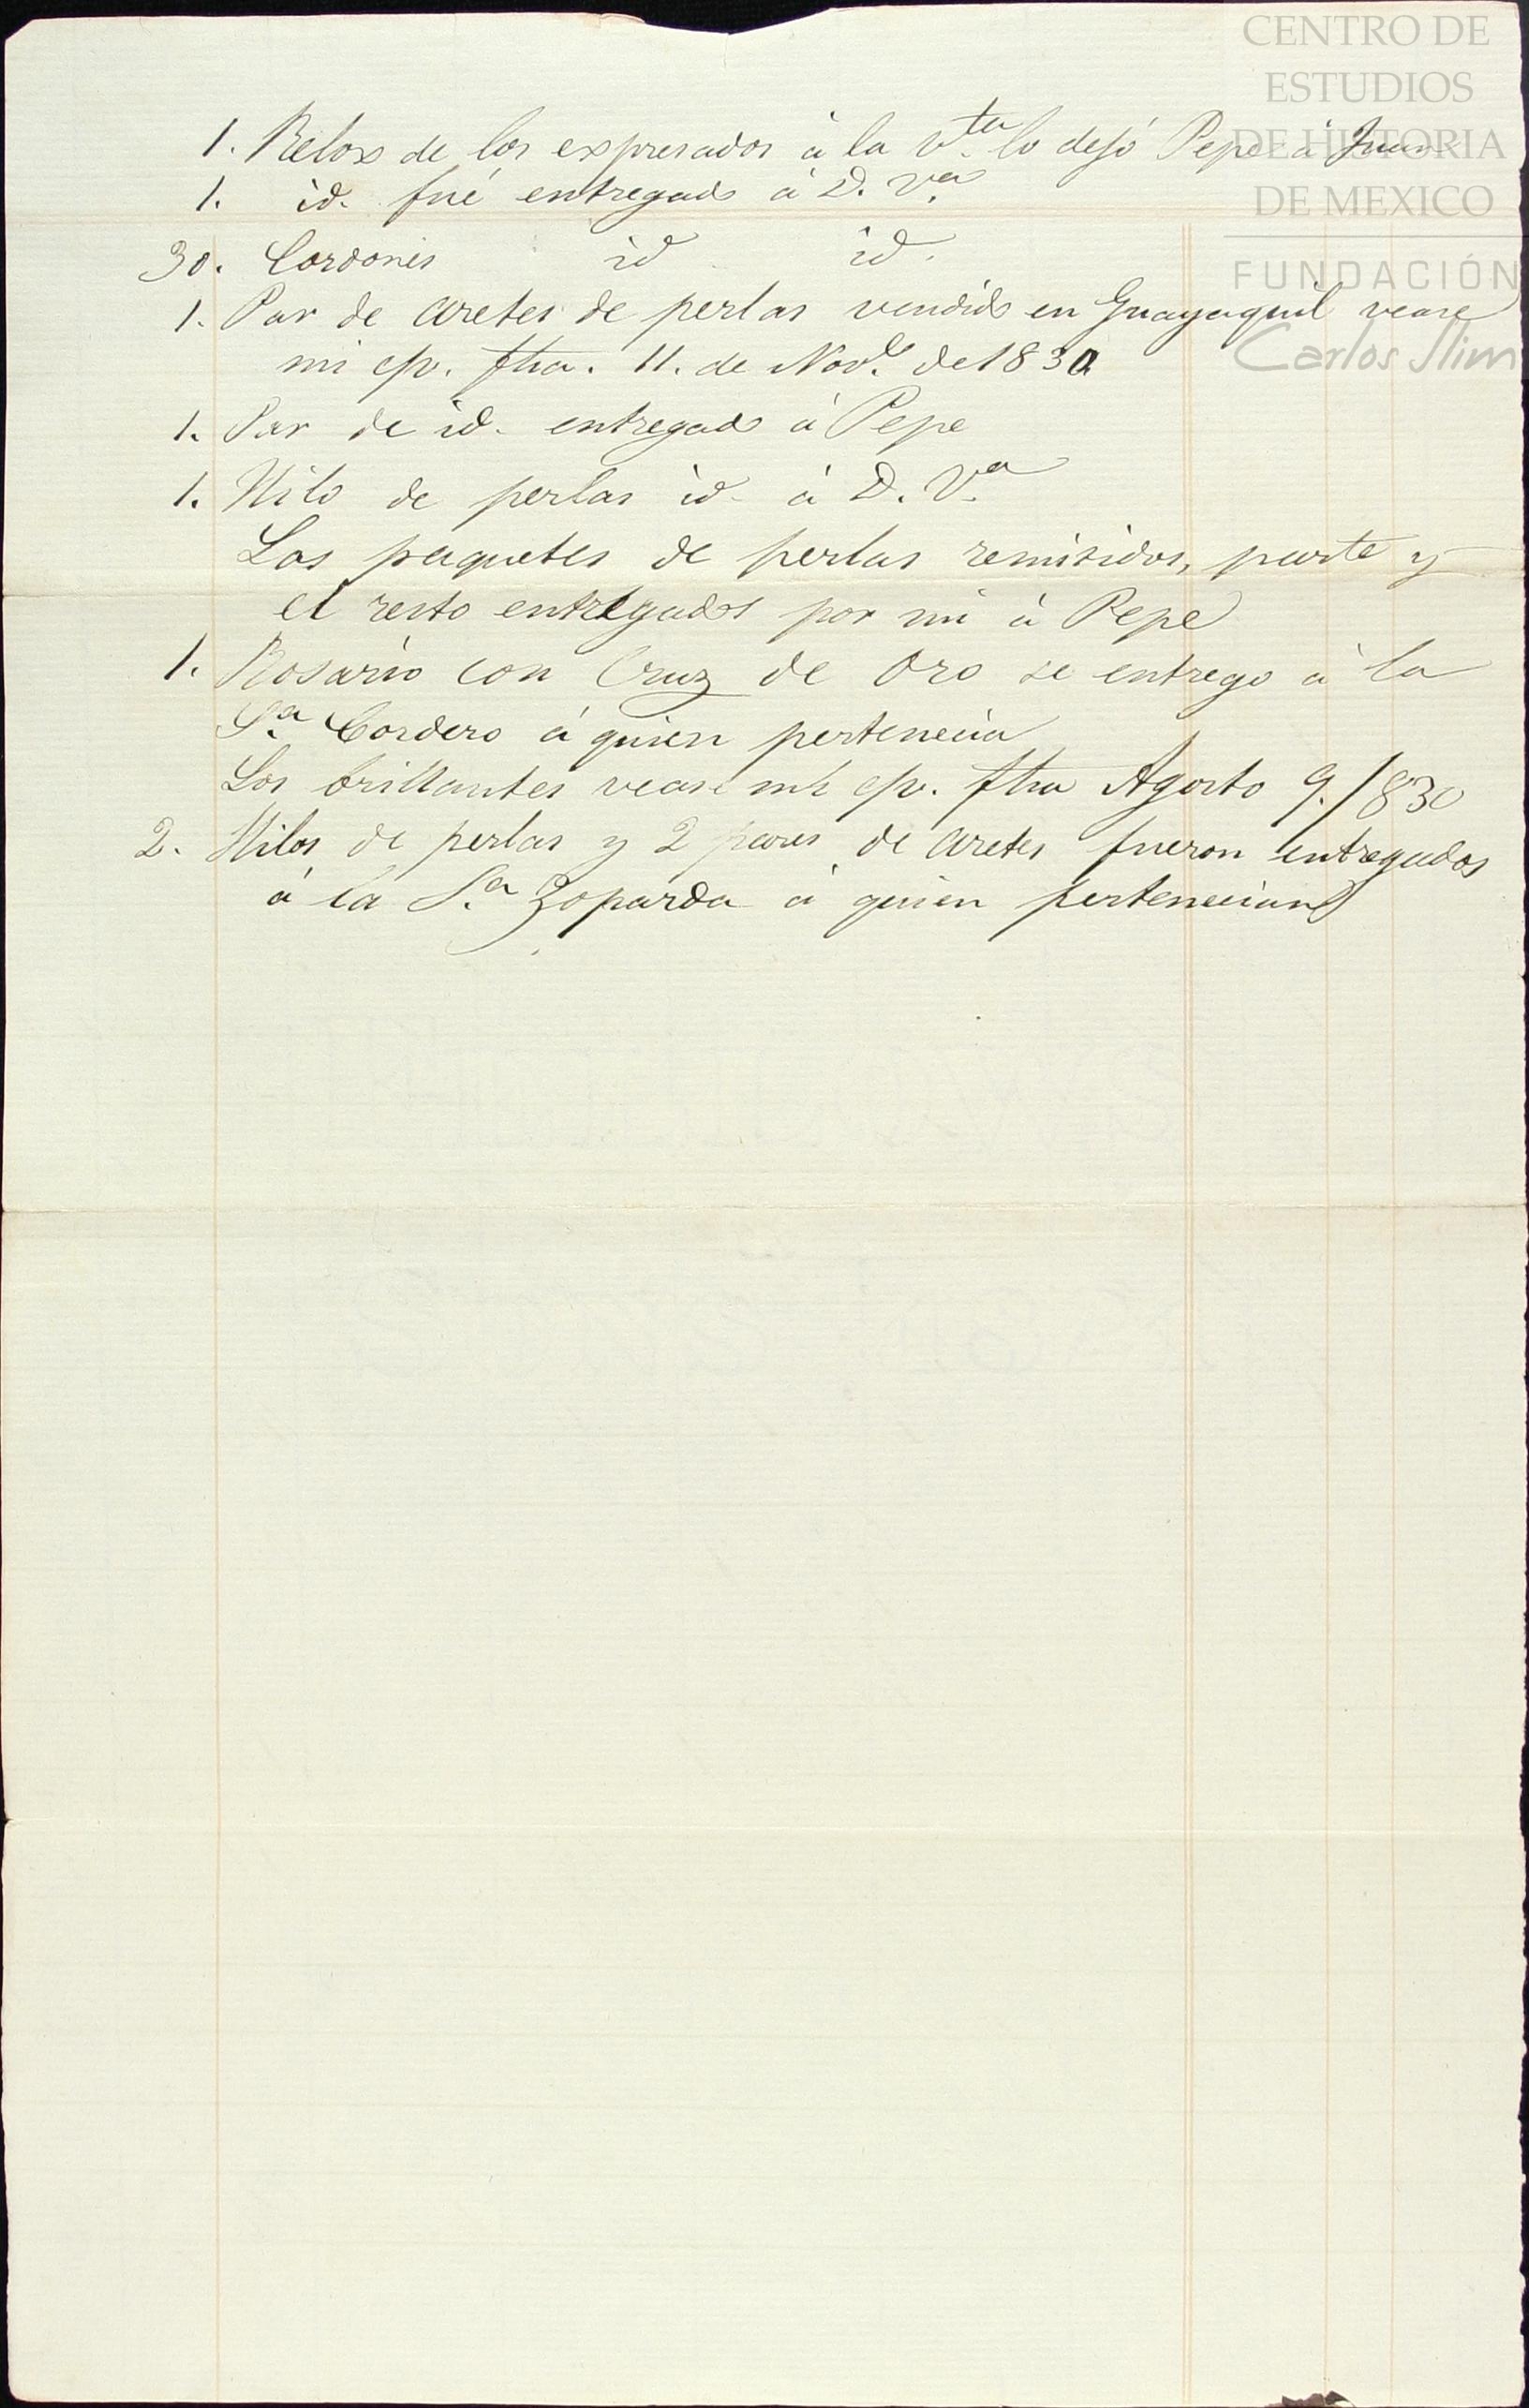 CENTRO DE
ESTUDIOS
DE HISTORIA
DE MEXICO
FUNDACIÓN
Carlos Slim
1. Relox de los expresados à la v.ta lo dejó Pepe à Juan
1. id. fué entregado à D. V.a
30. Cordones id id.
1. Par de aretes de perlas vendido en Guayaquil vease
mi cp. fha. 11. de Nov.e de 1830
1. Par de id. entregado à Pepe
1. Hilo de perlas id. à D. V.a
Los paquetes de perlas remitidos, parte y
el resto entregados por mi à Pepe
1. Rosario con Cruz de Oro se entrego à la
S.a Cordero á quien pertenecia
Los brillantes vease mi cp. fha Agosto 9./830
2. Hilos de perlas y 2 pares de aretes fueron entregados
á la S.a Zoparda á quien pertenecian